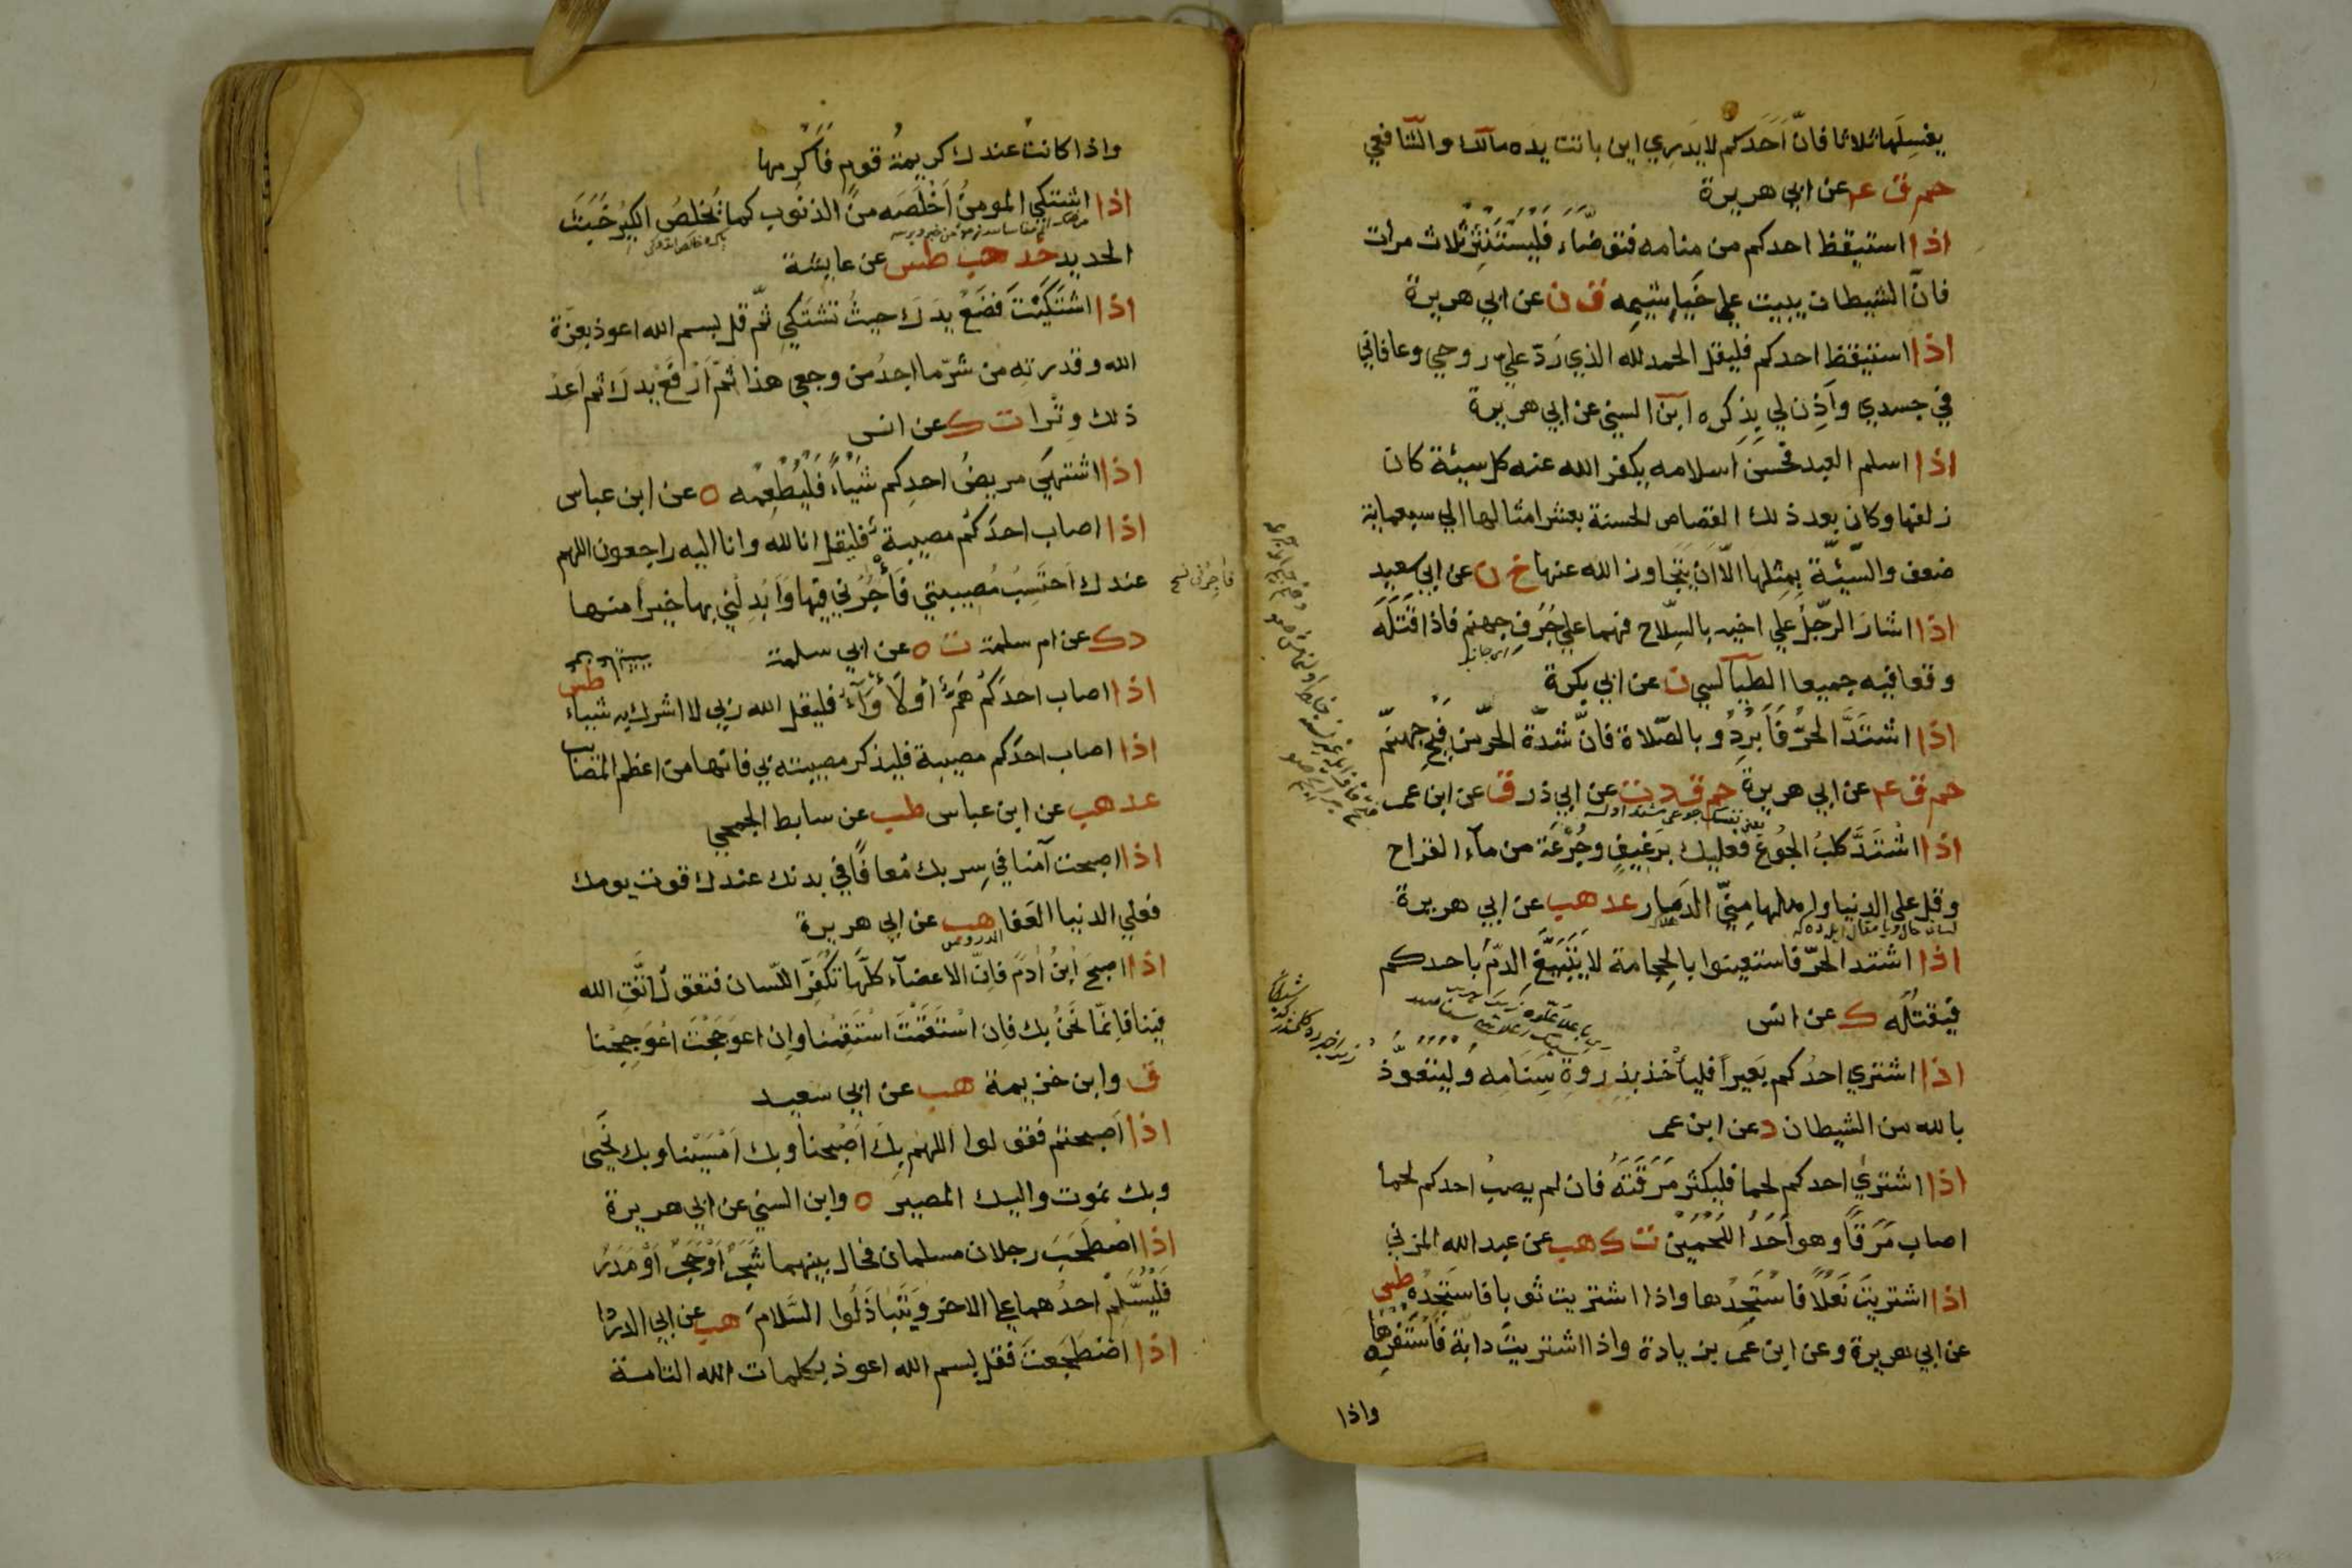 يغسلها ثلاثا فانّ اَحَدَكم لا يَدرِي اين باتت يده مالك والشافعي
حم ق عـ عن ابي هريرة
اذا استيقظ احدكم من منامه فتوضّاَء فَلْيَسْتَنْثِرْ ثلاث مرات
فانّ الشيطان يبيت علي خَيَاشِيمِه ق ن عن ابي هريرة
اذا استيقظ احدكم فليقل الحمد لله الذي رَدّ عليّ روحي وعافاني
في جسدي واَذِن لي بِذِكره ابن السني عن ابي هريرة
اذا اسلم العبد فحَسُنَ اسلامه يكفر الله عنه كل سيئة كان
زلفها وكان بعد ذلك القصاص الحسنة بعشر امثالها الي سبعماية
ضعف والسّيئة بِمِثلها الّا ان يَتَجاوز الله عنها خ ن عن ابي سعيد
اذا اشارَ الرّجلُ علي اخيه بالسِّلاح فهما علي جُرُفِ جهنم فاذا قَتَلَه
وقعا فيه جميعا الطيالسي ن عن ابي بكرة
اذا اشتَدَّ الحَرّ فَاَبْرِدُو بالصّلاة فانّ شدّة الحَرّ من فَيْحِ جهنّم
حم ق عـ عن ابي هريرة حم ق د ت عن ابي ذر ق عن ابن عمر
اذا اشْتَدَّ كلبُ الجُوعِ فعليك بِرَغيفٍ وجُرْعَة من مآء القراح
وقل علي الدنيا واهلها مِنّي الدَمار عد هب عن ابي هريرة
اذا اشتد الحَرّ فاستعينوا بالحِجامة لا يَتَبَيَّغِ الدّم باحدكم
فيَقتُلَه ك عن انس
اذا اشتري احدُكم بَعِيراً فلياْخذ بِذِروة سَنَامِه وليتعوّذ
بالله من الشيطان د عن ابن عمر
اذا اشتري احدكم لحما فليكثر مَرَقَتَهُ فان لم يصب احدكم لحما
اصاب مَرَقاً وهو اَحَدُ اللَحْمَيْن ت ك هب عن عبد الله المزني
اذا اشتريتَ نَعلاً فاسْتَجِدْها واذا اشتريت ثوبا فاستَجِدْه طس
عن ابي هريرة وعن ابن عمر بزيادة واذا اشتريتَ دابة فَاسْتَفْرِهها
واذا
واذا كانت عندك كريمة قوم فَاَكْرِمها
اذا اشتكي المومنُ اَخْلَصَه منَ الذنُوب كما يُخلصُ الكِيرُ خَبَثَ
الحديد خد حب طس عن عايشة
اذا اشتَكَيْتَ فَضَعْ يدَكَ حيثُ تشتَكي ثمّ قل بسم الله اعوذ بعزّة
الله وقدرته من شرّ ما اجدُ من وجعي هذا ثمّ اَرْفَعْ يدكَ ثم اعد
ذلك وِترا ت ك عن انس
اذا اشتهيَ مريضُ احدِكم شَيْأً فَلْيُطْعِمْه ه عن ابن عباس
اذا اصاب احدَكُم مصيبة فليقل انا لله وانا اليه راجعون اللهم
عندك اَحتَسِبُ مُصيبتي فَأْجُرْني فيها وَاَبْدِلْني بها خيراً منها
فأجِرْني نسخ
د ك عن ام سلمة ت ه عن ابي سلمة
اذا اصاب احدَكُم هَمٌّ أو لَأْوَآءٌ فليقل الله ربي لا اشرك به شيأ طس
اذا اصاب احدكم مصيبة فليذكر مصيبته بي فانها من اعظم المصايب
عد هب عن ابن عباس طب عن سابط الجمحي
اذا اصبحت آمنا في سِربك مُعافًا في بدنك عندك قوت يومك
فعلي الدنيا العَفا هب عن ابي هريرة
اذا اصبحَ ابنُ اٰدمَ فاِنّ الاعضآء كلّها تُكَفِّر اللّسان فتقول اتَّقِ الله
فينا فاِنمّا نَحنُ بك فاِن اسْتَقَمْتَ اسْتَقَمْنا واِن اعوَججْتَ اعْوَججْنا
ق وابن خزيمة هب عن ابي سعيد
اذا اَصبحتم فقولوا اللهُم بِكَ اَصْبحنا وبك اَمْسَيْنا وبك نَحيَى
وبك نموت واليك المصير ه وابن السني عن ابي هريرة
اذا اصْطَحَبَ رجلان مسلمان فحال بينهما شَجَرٌ اَوْ حَجَرٌ اَوْ مَدَرٌ
فَلْيُسَلِّمْ احدُهما علي الاخر وَيَتَبَاذَلُوا السَّلامَ هب عن ابي الدردا
اذا اضْطَجَعتَ فقل بسم الله اعوذ بكلمات الله التامة